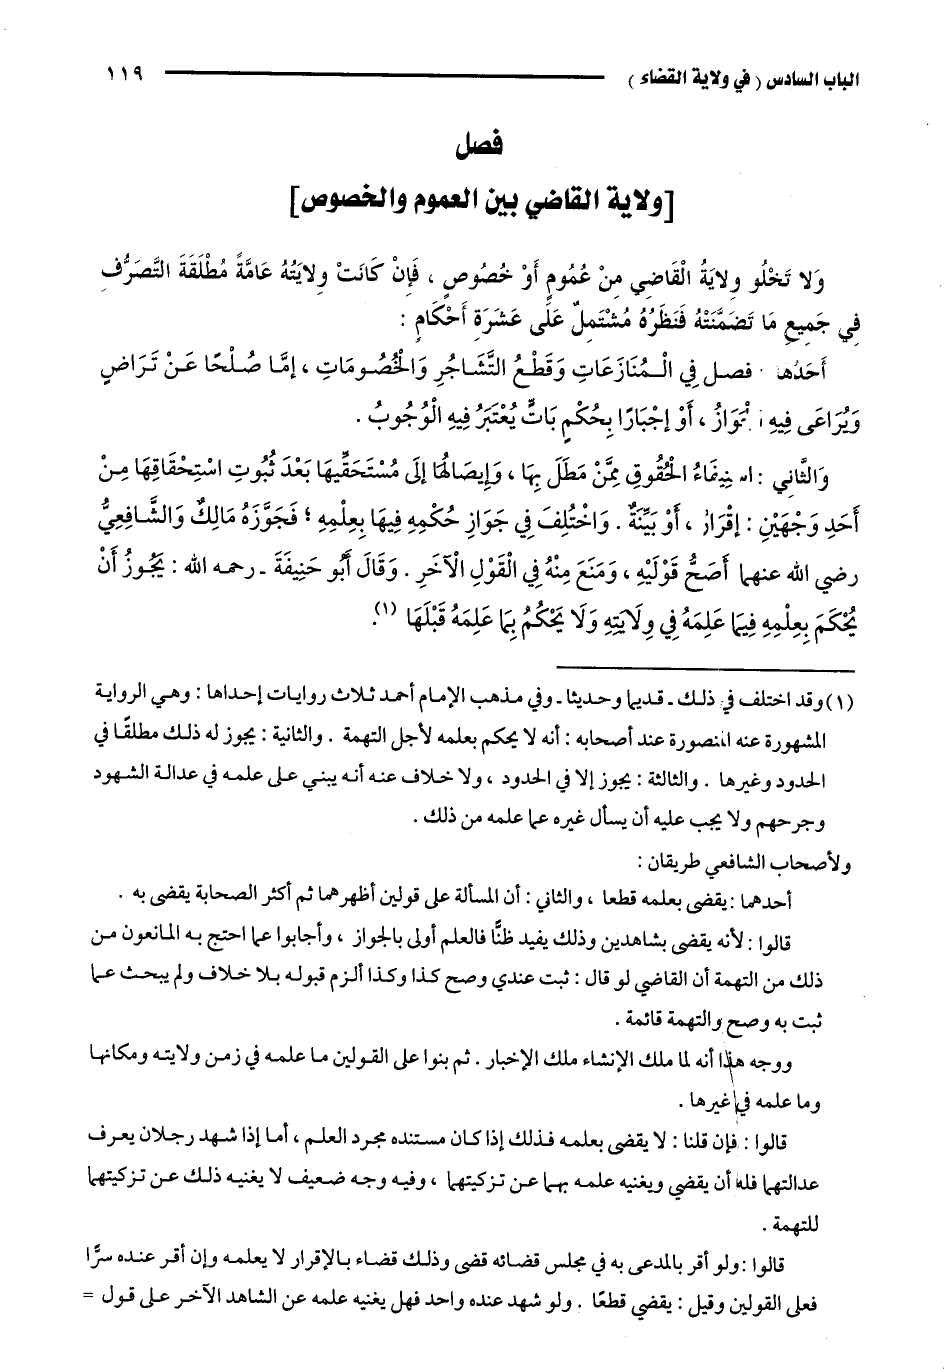 الباب السادس ( في ولاية القضاء ) ١١٩
فصل
[ولاية القاضي بين العموم والخصوص]
وَلا تَخْلُو وِلايَةُ الْقَاضِي مِنْ عُمُومٍ أَوْ خُصُوصٍ ، فَإِنْ كَانَتْ وِلايَتُهُ عَامَّةً مُطْلَقَةَ التَّصَرُّفِ
فِي جَمِيعِ مَا تَضَمَّنَتْهُ فَنَظَرُهُ مُشْتَمِلٌ عَلَى عَشَرَةِ أَحْكَامٍ :
أَحَدُهَا فصل فِي الْمُنَازَعَاتِ وَقَطْعُ التَّشَاجُرِ وَالْخُصُومَاتِ ، إِمَّا صُلْحًا عَنْ تَرَاضٍ
وَيُرَاعَى فِيهِ الْجَوَازُ ، أَوْ إِجْبَارًا بِحُكْمٍ بَاتٍّ يُعْتَبَرُ فِيهِ الْوُجُوبُ .
وَالثَّانِي : اسْتِيفَاءُ الْحُقُوقِ مِمَّنْ مَطَلَ بِهَا ، وَإِيصَالُهَا إِلَى مُسْتَحَقِّيهَا بَعْدَ ثُبُوتِ اسْتِحْقَاقِهَا مِنْ
أَحَدِ وَجْهَيْنِ : إِقْرَارٌ ، أَوْ بَيِّنَةٌ . وَاخْتُلِفَ فِي جَوَازِ حُكْمِهِ فِيهَا بِعِلْمِهِ ؛ فَجَوَّزَهُ مَالِكٌ وَالشَّافِعِيُّ
رضي الله عنهما أَصَحُّ قَوْلَيْهِ ، وَمَنَعَ مِنْهُ فِي الْقَوْلِ الْآخَرِ . وَقَالَ أَبُو حَنِيفَةَ ـ رحمه الله : يَجُوزُ أَنْ
يُحْكَمَ بِعِلْمِهِ فِيمَا عَلِمَهُ فِي وِلَايَتِهِ وَلَا يَحْكُمُ بِمَا عَلِمَهُ قَبْلَهَا (١).
(١) وقد اختلف في ذلك ـ قديما وحديثا ـ وفي مذهب الإمام أحمد ثلاث روايات إحداها : وهي الرواية
المشهورة عنه المنصورة عند أصحابه : أنه لا يحكم بعلمه لأجل التهمة . والثانية : يجوز له ذلك مطلقًا في
الحدود وغيرها . والثالثة : يجوز إلا في الحدود ، ولا خلاف عنه أنه يبني على علمه في عدالة الشهود
وجرحهم ولا يجب عليه أن يسأل غيره عما علمه من ذلك .
ولأصحاب الشافعي طريقان :
أحدهما : يقضى بعلمه قطعا ، والثاني : أن المسألة على قولين أظهرهما ثم أكثر الصحابة يقضى به .
قالوا : لأنه يقضى بشاهدين وذلك يفيد ظنًّا فالعلم أولى بالجواز ، وأجابوا عما احتج به المانعون من
ذلك من التهمة أن القاضي لو قال : ثبت عندي وصح كذا وكذا ألزم قبوله بلا خلاف ولم يبحث عما
ثبت به وصح والتهمة قائمة .
ووجه هذا أنه لما ملك الإنشاء ملك الإخبار . ثم بنوا على القولين ما علمه في زمن ولايته ومكانها
وما علمه في غيرها .
قالوا : فإن قلنا : لا يقضى بعلمه فذلك إذا كان مستنده مجرد العلم ، أما إذا شهد رجلان يعرف
عدالتهما فله أن يقضي ويغنيه علمه بهما عن تزكيتهما ، وفيه وجه ضعيف لا يغنيه ذلك عن تزكيتهما
للتهمة .
قالوا : ولو أقر بالمدعى به في مجلس قضائه قضى وذلك قضاء بالإقرار لا يعلمه وإن أقر عنده سرًّا
فعلى القولين وقيل : يقضي قطعًا . ولو شهد عنده واحد فهل يغنيه علمه عن الشاهد الآخر على قول =